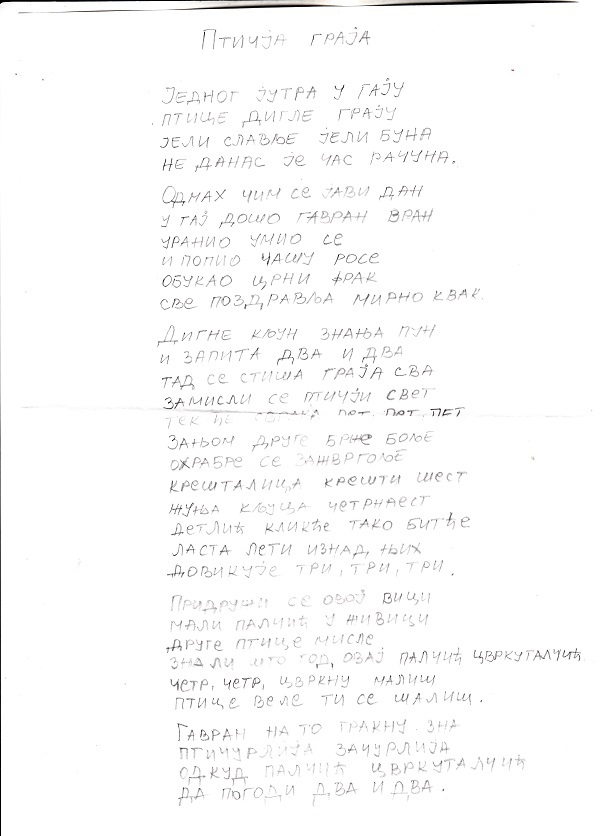 Птичја граја
Једног јутра у гају
птице дигле грају
јели славље јели буна
не данас је час рачуна.
Однах чим се јави дан
у гај дошо гавран вран
уранио умио се
и попио чашу росе
обукао црни фрак
све поздравља мирно квак.
Дигне кљун знања пун
и запита два и два
тад се стиша граја сва
замисли се птичји свет
тек ће пет, пет, пет
Зањом друге брже боље
охрабре се зажврголје
крешталица крешти шест
жуња кљуца четрнаест
детлић кликће тако битће
ласта лети изнад њих
довикује три, три, три.
Придружи се овој вици
мали палчић у живици
друге птице мисле
зна ли што год, овај палчић цвркуталчић
четр, четр, цвркну малиш
птице веле ти се шалиш.
Гавран на то гракну зна
птичурлија зачурлија
одкуд палчић цвркуталчић
да погоди два и два.